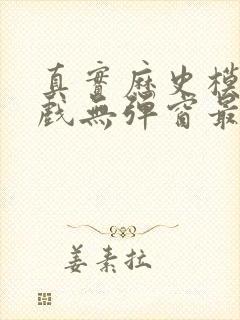 真實歷史模
戲無彈窗最
姜素拉